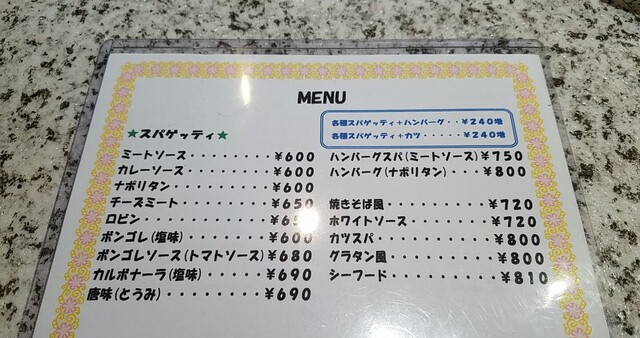 MENU
各種スパゲッティ+ハンバーグ・・¥240増
各種スパゲッティ+カツ・・・・・¥240増
★スパゲッティ★
ミートソース・・・・・・・・¥600
カレーソース・・・・・・・・¥600
ナポリタン・・・・・・・・・¥600
チーズミート・・・・・・・・¥650
ロビン・・・・・・・・・・・
ボンゴレ(塩味)・・・・・・・¥600
ボンゴレソース(トマトソース)¥680
カルボナーラ(塩味)・・・・・¥690
唐味(とうみ)・・・・・・・・¥690
ハンバーグスパ(ミートソース)¥750
ハンバーグ(ナポリタン)・・・¥800
焼きそば風・・・・・・・・・¥720
ホワイトソース・・・・・・・¥720
カツスパ・・・・・・・・・・¥800
グラタン風・・・・・・・・・¥800
シーフード・・・・・・・・・¥810